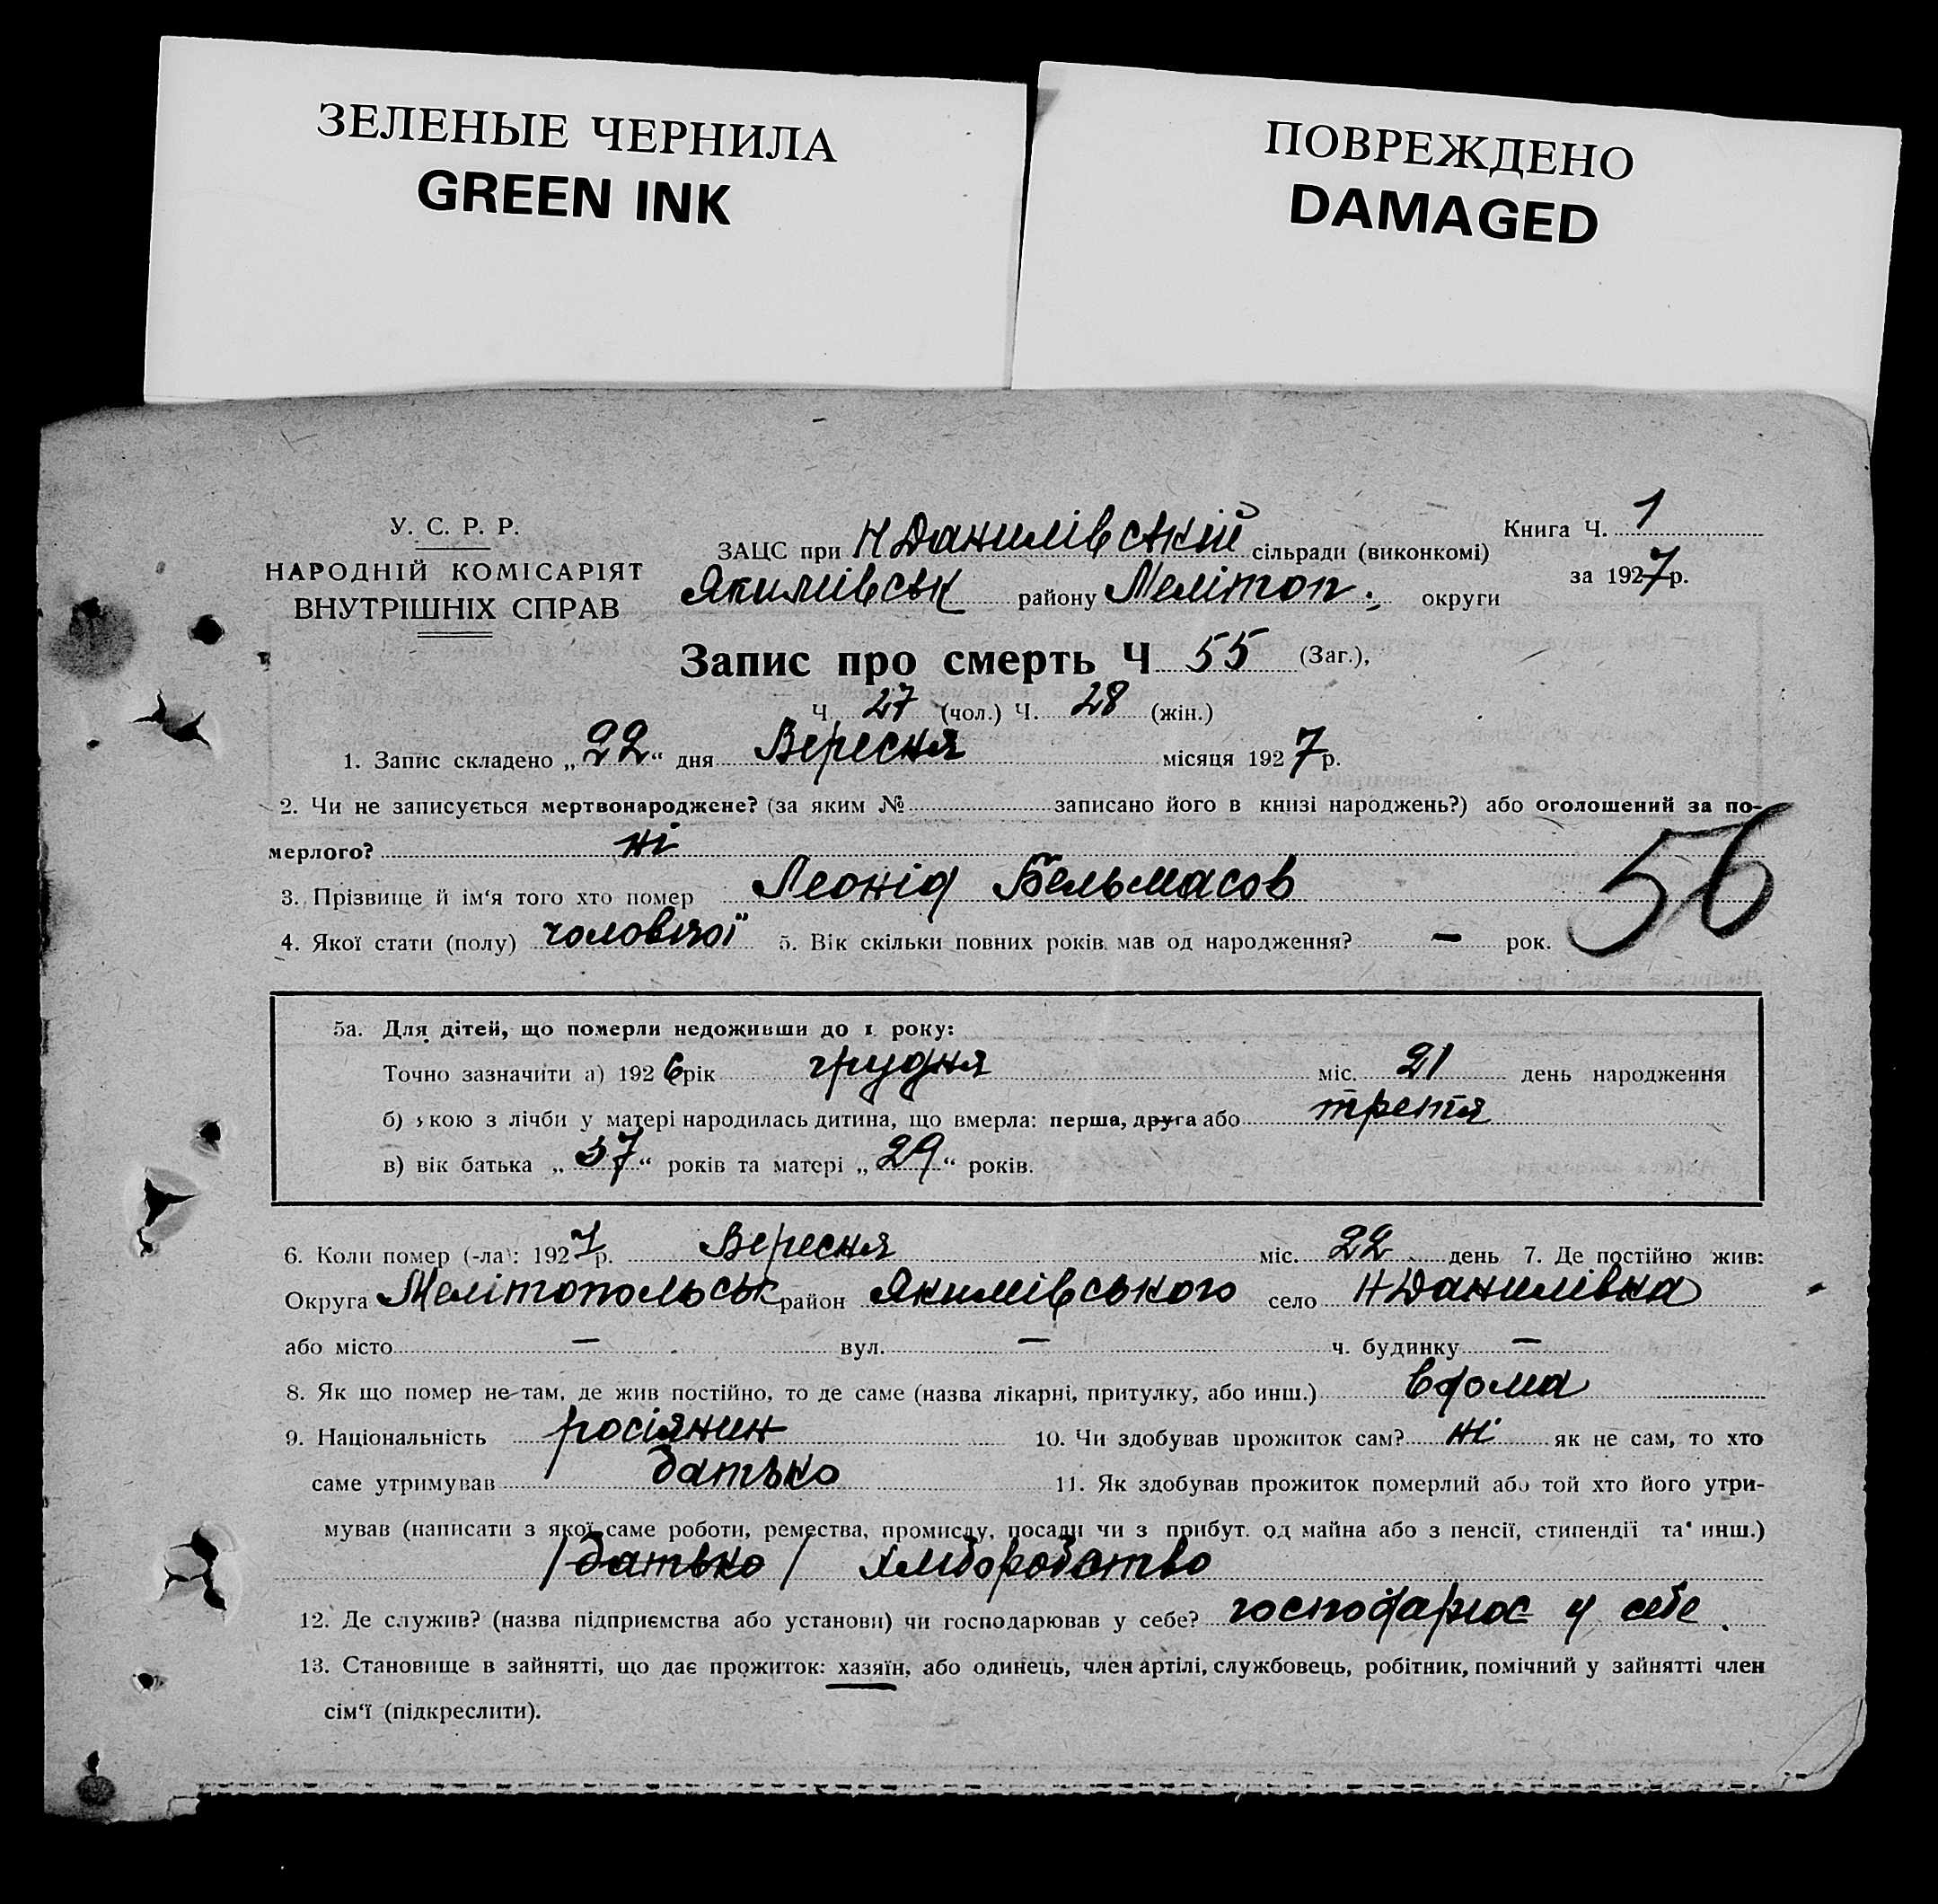 ЗЕЛЕНЫЕ ЧЕРНИЛА
GREEN INK
ПОВРЕЖДЕНО
DAMAGED
У. С. Р. Р.
НАРОДНІЙ КОМІСАРІЯТ
ВНУТРІШНІХ СПРАВ
ЗАЦС при НДанилівській сільради (виконкомі)
Якимівськ району Мелітоп. округи
Книга Ч. 1
за 1927р.
Запис про смерть Ч 55 (Заг.),
Ч. 27 (чол.) Ч. 28 (жін.)
1. Запис складено „22“ дня Вересня місяця 1927р.
2. Чи не записується мертвонароджене? (за яким № записано його в книзі народжень?) або оголошений за по-
мерлого? ні
56
3. Прізвище й ім‘я того хто помер Леонід Бельмасов
4. Якої стати (полу) чоловічої 5. Вік скільки повних років мав од народження? — рок.
5а. Для дітей, що померли недоживши до 1 року:
Точно зазначити а) 1926рік грудня міс. 21 день народження
б) кою з лічби у матері народилась дитина, що вмерла: перша, друга або третя
в) вік батька „37“ років та матері „29“ років.
6. Коли помер (-ла): 1927р. Вересня міс. 22 день 7. Де постійно жив:
Округа Мелітопольськ район Якимівського село НДанилівка
або місто — вул. — ч. будинку —
8. Як що помер не там, де жив постійно, то де саме (назва лікарні, притулку, або инш.) вдома
9. Національність росіянин 10. Чи здобував прожиток сам? ні як не сам, то хто
саме утримував батько 11. Як здобував прожиток померлий або той хто його утри-
мував (написати з якої саме роботи, ремества, промислу, посади чи з прибут. од майна або з пенсії, стипендії та инш.)
/батько/ хліборобство
12. Де служив? (назва підприємства або установи) чи господарював у себе? господарює у себе.
13. Становище в зайнятті, що дає прожиток: хазяїн, або одинець, член артілі, службовець, робітник, помічний у зайнятті член
сім‘ї (підкреслити).